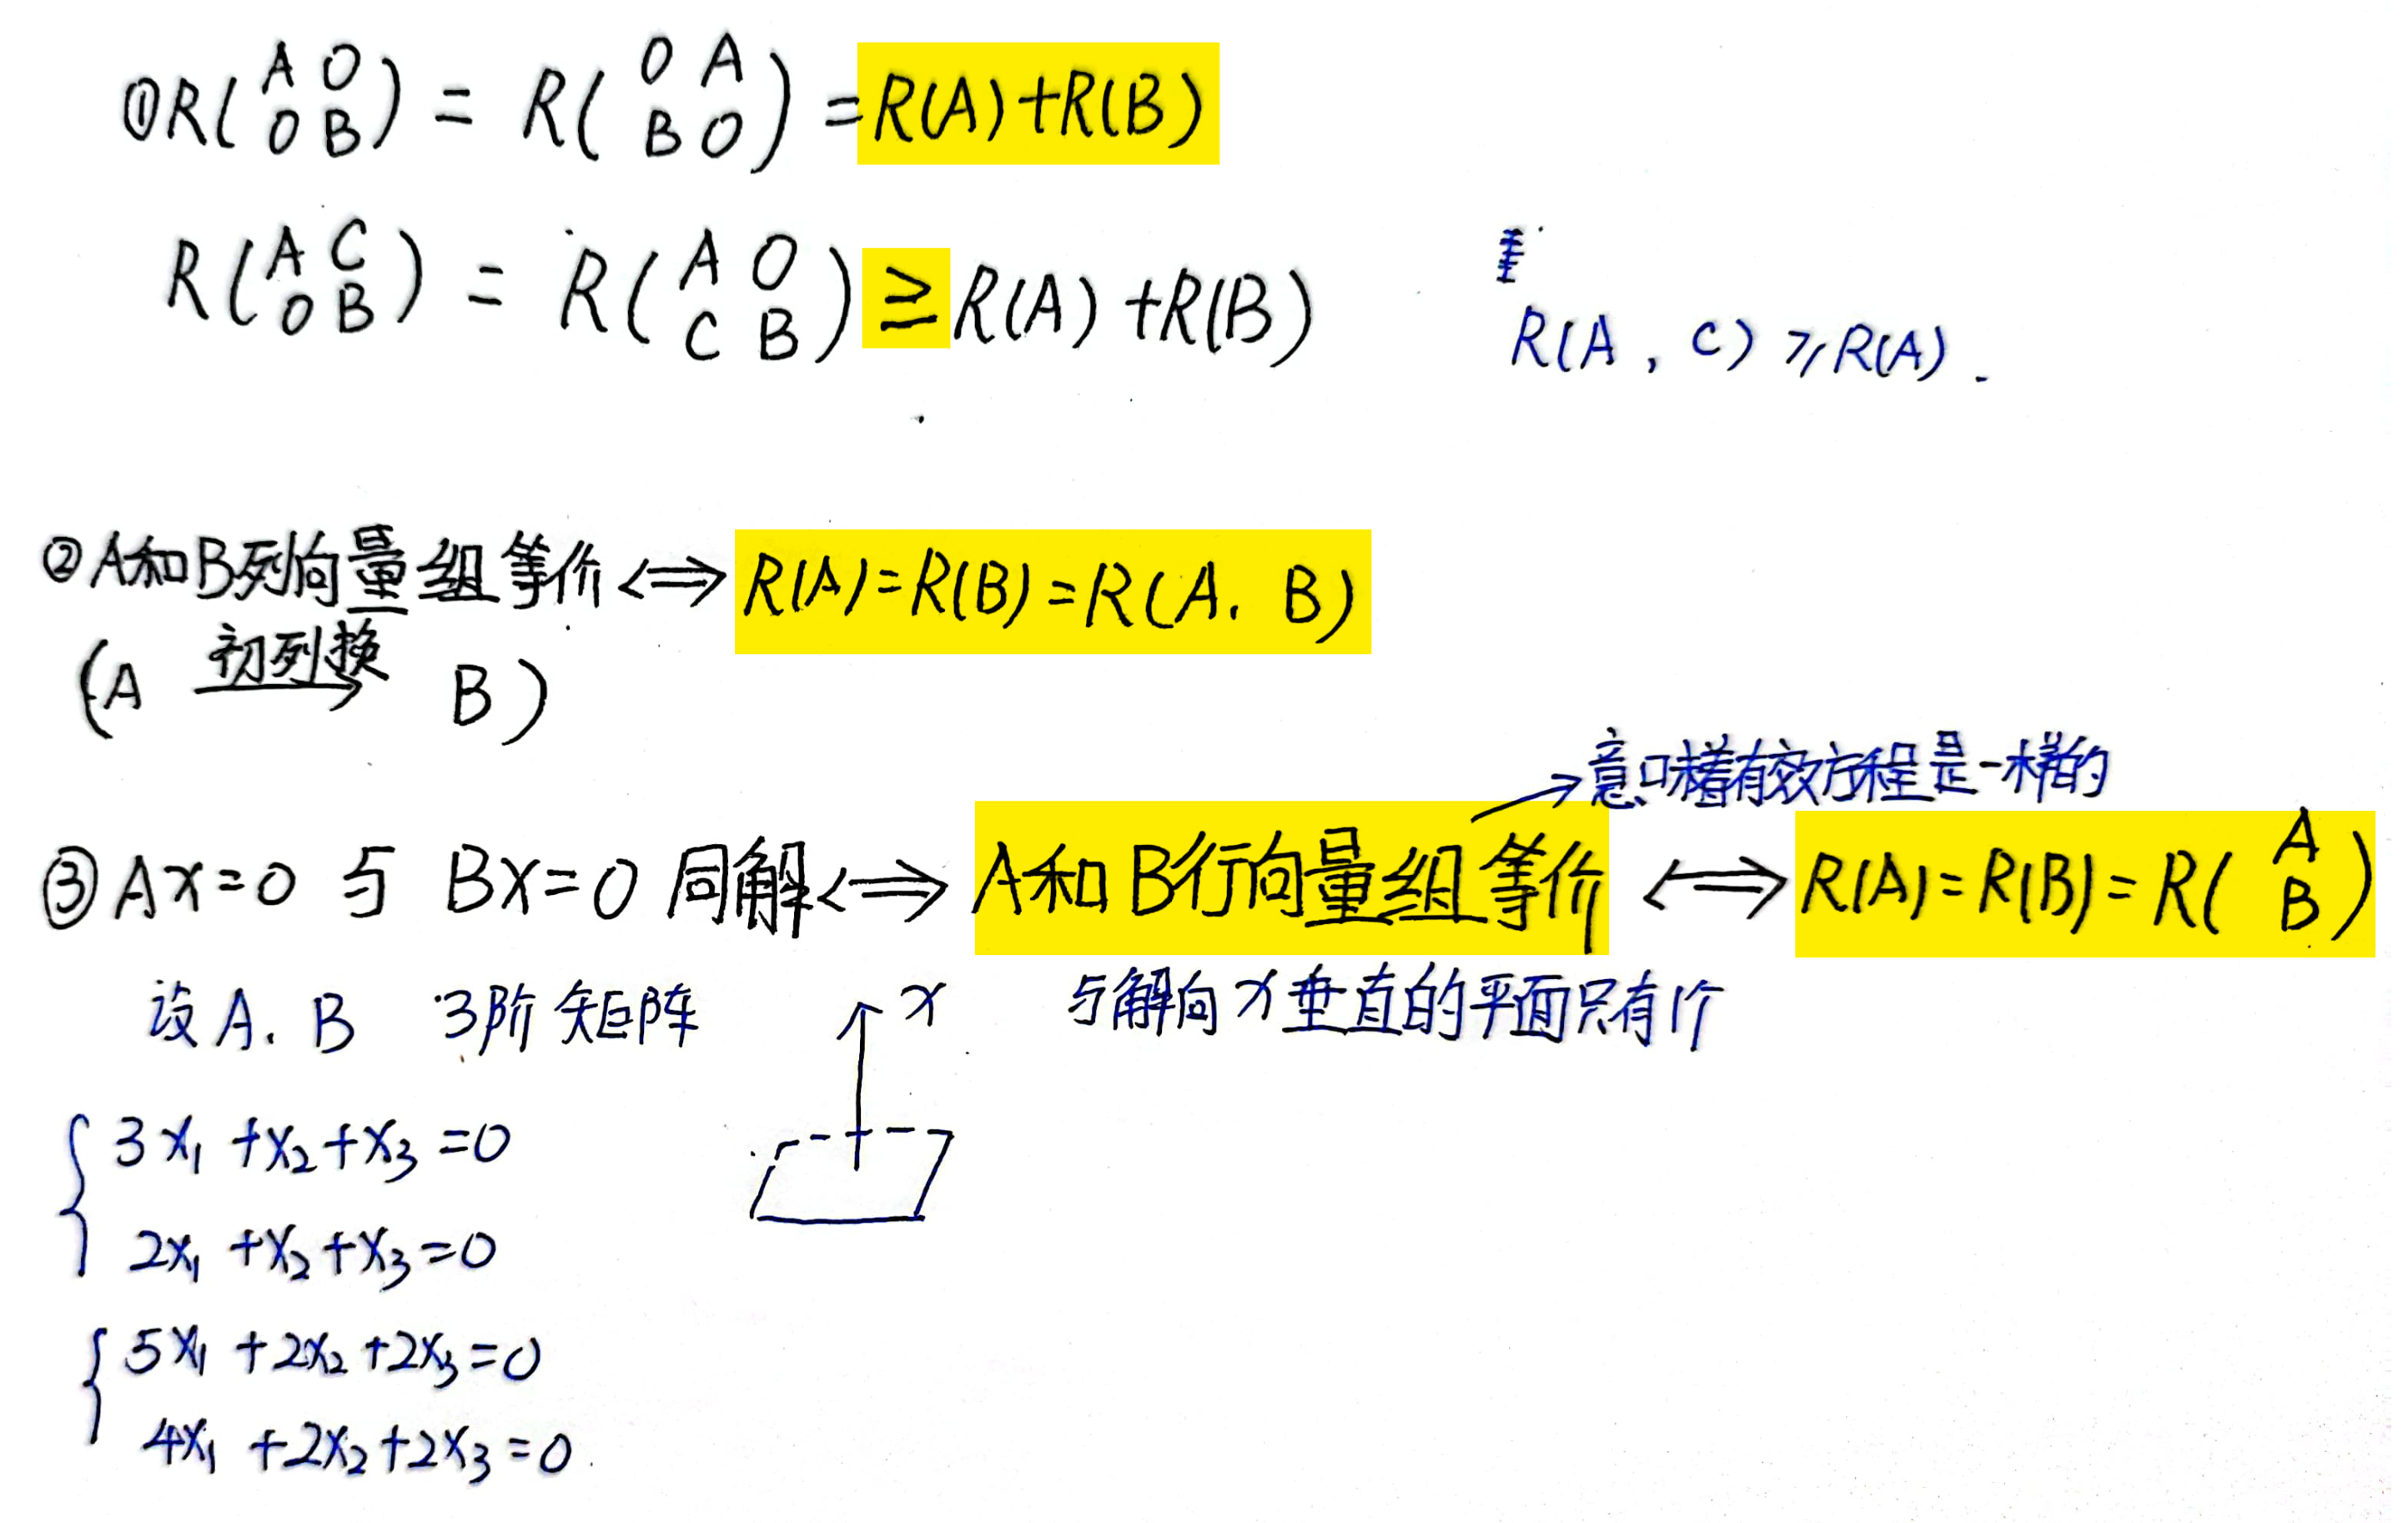 ①R(A O
O B) = R(O A
B O) = R(A)+R(B)
R(A C
O B) = R(A O
C B) ≥ R(A)+R(B)
R(A, C) ≥ R(A).
②A和B列向量组等价 <=> R(A)=R(B)=R(A. B)
(A 初列换→ B)
→意味着有效方程是一样的
③Ax=0 与 Bx=0 同解 <=> A和B行向量组等价 <=> R(A)=R(B)=R(A
B)
设A. B 3阶矩阵
x
与解向x垂直的平面只有1个
{3x₁+x₂+x₃=0
2x₁+x₂+x₃=0
{5x₁+2x₂+2x₃=0
4x₁+2x₂+2x₃=0.